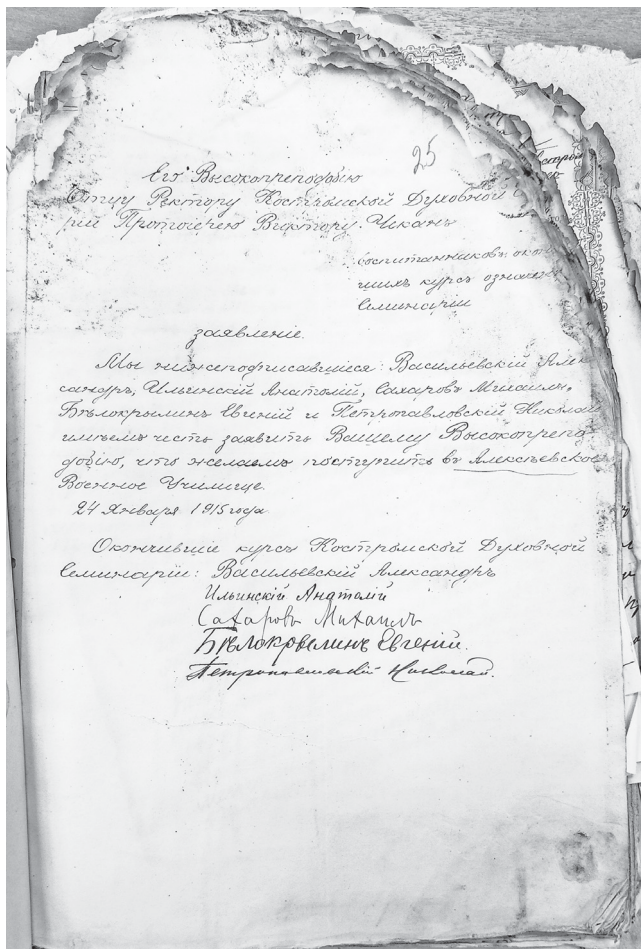 25
Его Высокопреподобію
Отцу Ректору Костромской Духовной
ріи Протоіерею Виктору Чекан
воспитанниковъ окон
шихъ курсъ означен
Семинаріи
заявленіе.
Мы нижеподписавшіеся: Васильевскій Алек
сандръ, Ильинскій Анатолій, Сахаровъ Михаилъ,
Бѣлокрылинъ Евгеній и Петропавловскій Николай
имѣемъ честь заявить Вашему Высокопрепо
добію, что желаемъ поступить въ Алексѣевское
Военное Училище.
24 Января 1915 года.
Окончившіе курсъ Костромской Духовной
Семинаріи: Васильевскій Александръ
Ильинскій Анатолій
Сахаровъ Михаилъ
Бѣлокрылинъ Евгеній.
Петропавловскій Николай.